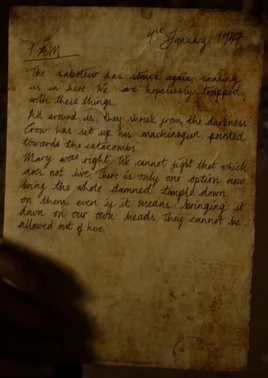 4ᵗᵉ January 1947
1 AM
The saboteur has struck again, sealing
us in here. We are hopelessly trapped
with these things.
All around us, they shriek from the darkness
Crow has set up his machinegun, pointed
towards the catacombs.
Mary was right. We cannot fight that which
does not live. There is only one option now
bring the whole damned temple down
on them, even if it means bringing it
down on our own heads. They cannot be
allowed out of here.